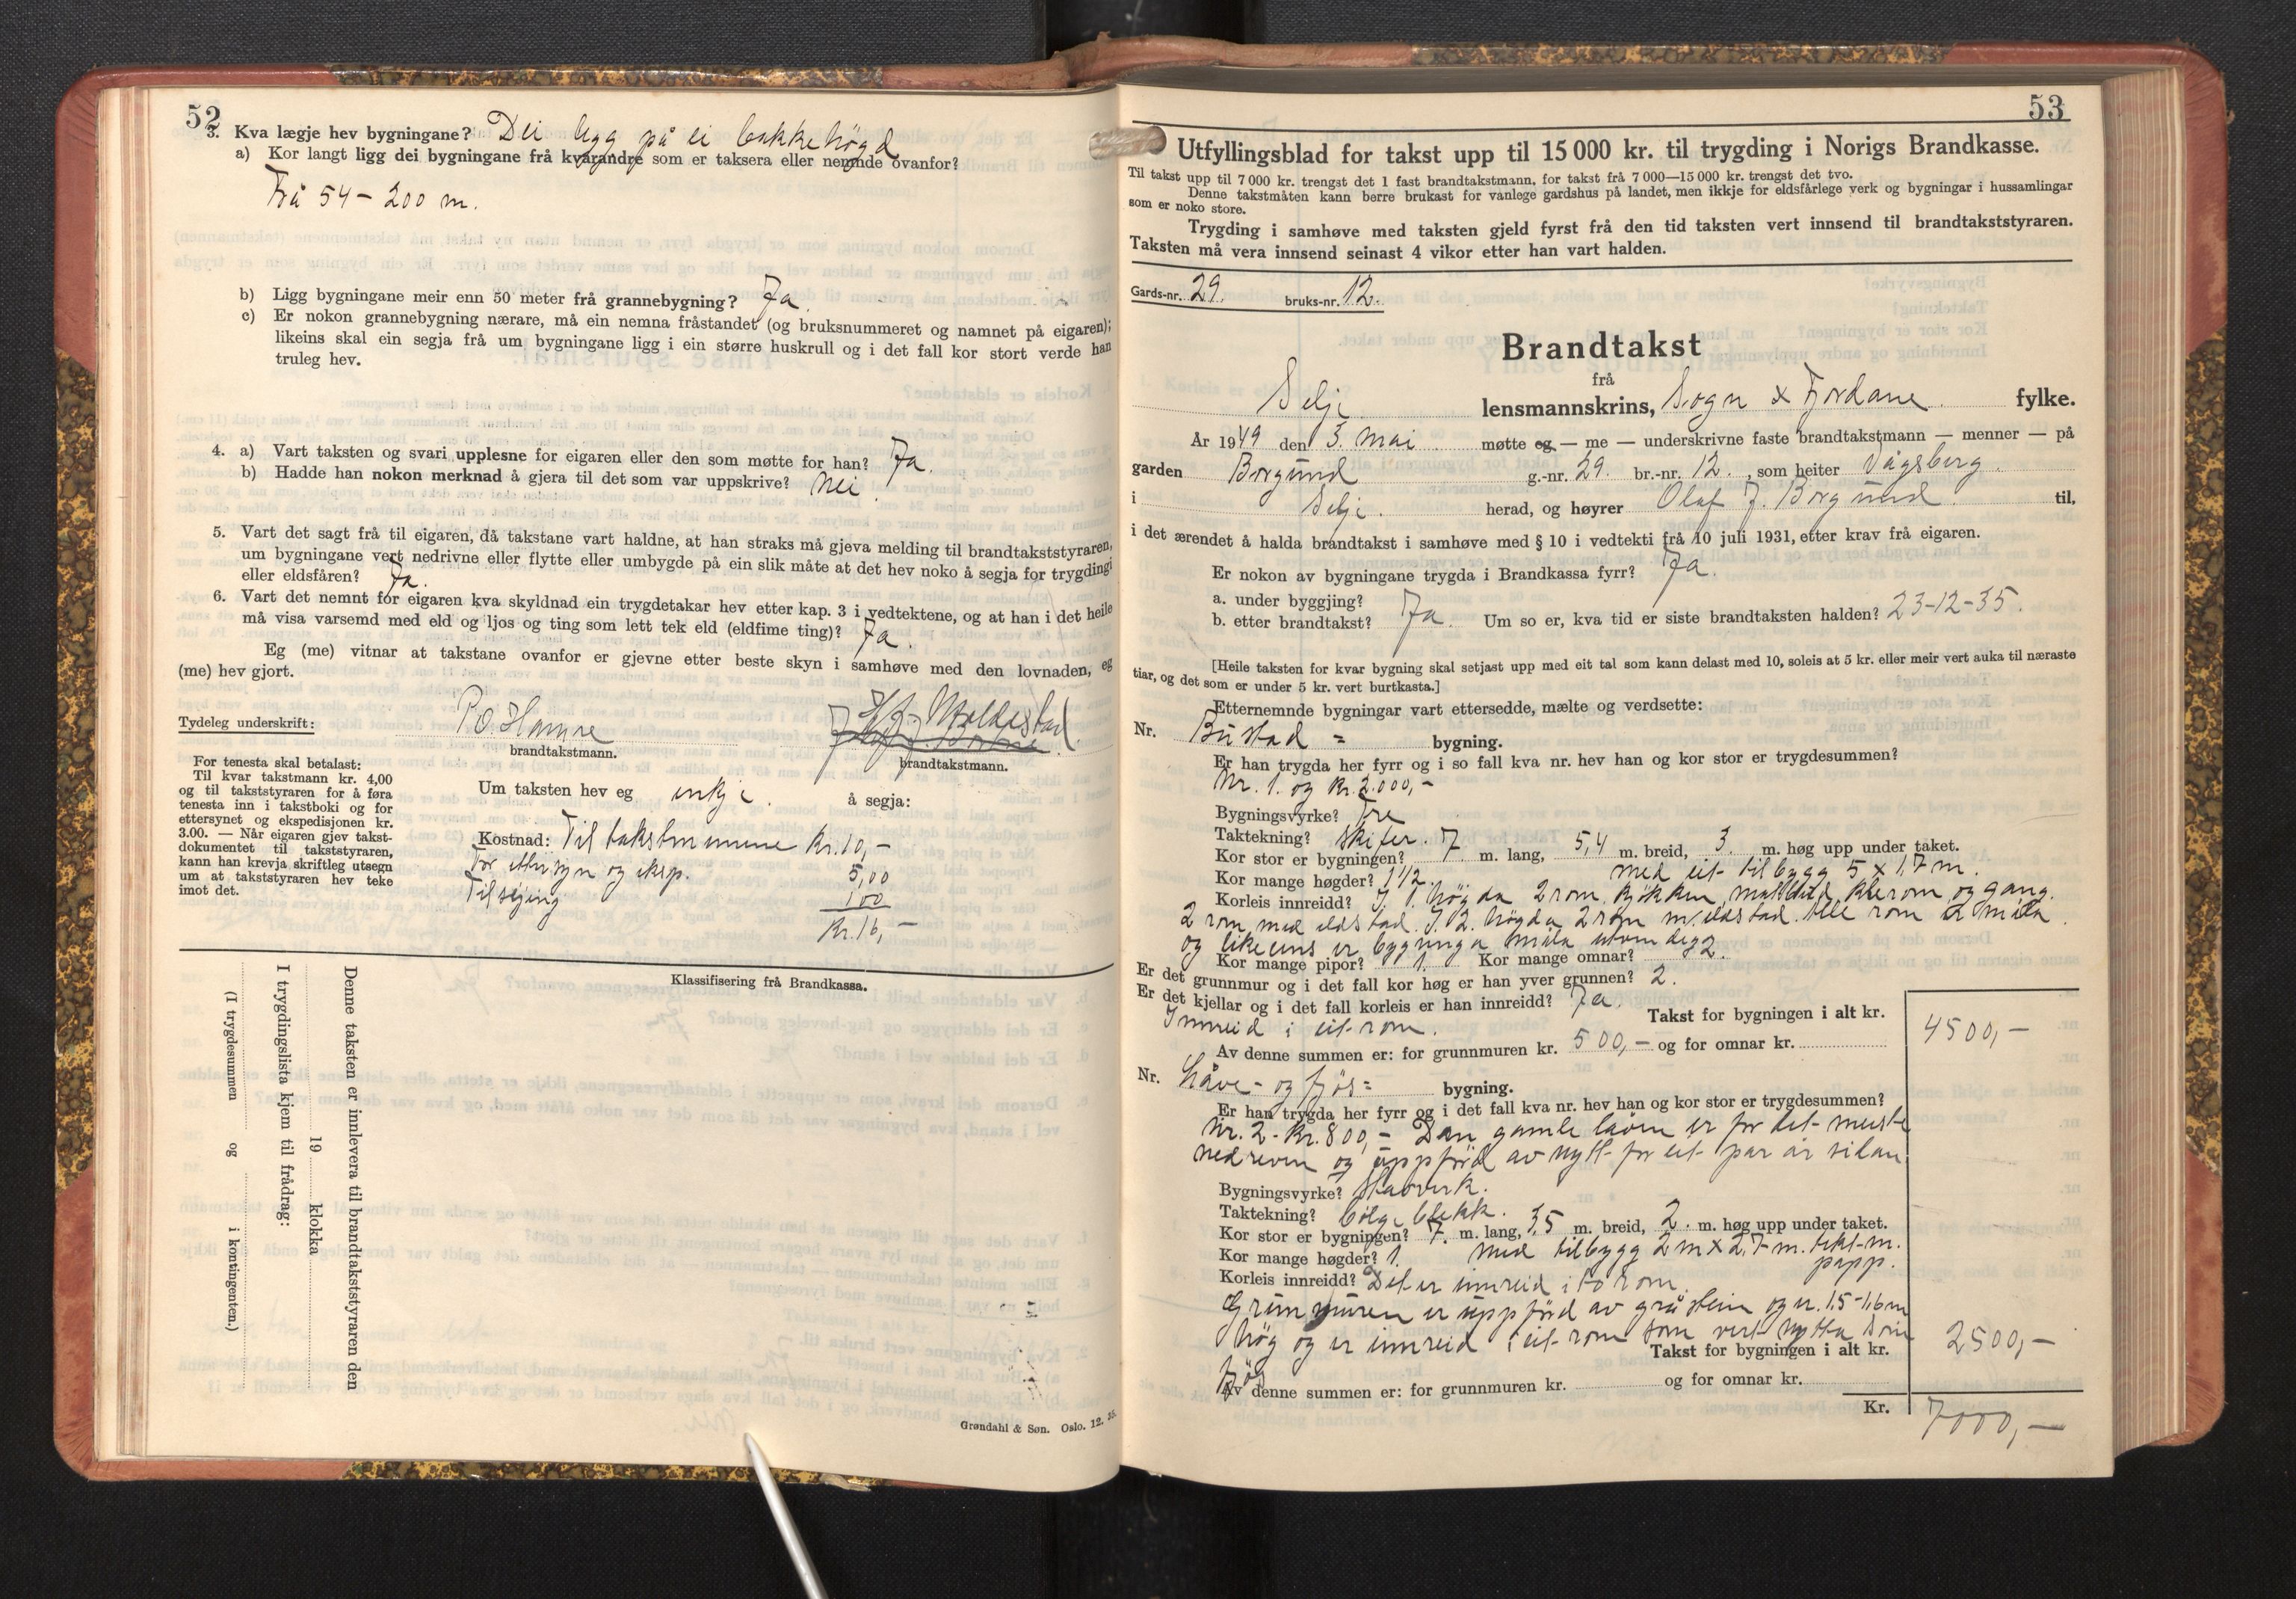 52
3. Kva lægje hev bygningane? Dei ligg på ei bakkehögd
a) Kor langt ligg dei bygningane frå kvarandre som er taksera eller nemnde ovanfor?
Frå 54 - 200 m.
b) Ligg bygningane meir enn 50 meter frå grannebygning? Ja
c) Er nokon grannebygning nærare, må ein nemna fråstandet (og bruksnummeret og namnet på eigaren);
likeins skal ein segja frå um bygningane ligg i ein større huskrull og i det fall kor stort verde han
truleg hev.
4. a) Vart taksten og svari upplesne for eigaren eller den som møtte for han? Ja.
b) Hadde han nokon merknad å gjera til det som var uppskrive? Nei.
5. Vart det sagt frå til eigaren, då takstane vart haldne, at han straks må gjeva melding til brandtakststyraren,
um bygningane vert nedrivne eller flytte eller umbygde på ein slik måte at det hev noko å segja for trygdingi
eller eldsfåren? Ja.
6. Vart det nemnt for eigaren kva skyldnad ein trygdetakar hev etter kap. 3 i vedtektene, og at han i det heile
må visa varsemd med eld og ljos og ting som lett tek eld (eldfime ting)? Ja.
Eg (me) vitnar at takstane ovanfor er gjevne etter beste skyn i samhøve med den lovnaden, eg
(me) hev gjort.
Tydeleg underskrift: P.O. Hamre Moldestad
brandtakstmann. brandtakstmann.
For tenesta skal betalast:
Til kvar takstmann kr. 4,00
og til takststyraren for å føra
tenesta inn i takstboki og for
ettersynet og ekspedisjonen kr.
3.00. — Når eigaren gjev takst-
dokumentet til takststyraren,
kann han krevja skriftleg utsegn
um at takststyraren hev teke
imot det.
Um taksten hev eg inkje. å segja:
Kostnad: Til takstmennene Kr. 10,-
For ettersyn og eksp. 5,00
Til seging 1 00
Kr. 16,-
Klassifisering frå Brandkassa.
Denne taksten er innlevera til brandtakststyraren den
19 klokka
I trygdingslista kjem til frådrag:
(I trygdesummen og i kontingenten.)
Grøndahl & Søn. Oslo. 12. 35.
53
Utfyllingsblad for takst upp til 15 000 kr. til trygding i Norigs Brandkasse.
Til takst upp til 7 000 kr. trengst det 1 fast brandtakstmann, for takst frå 7 000—15 000 kr. trengst det tvo.
Denne takstmåten kann berre brukast for vanlege gardshus på landet, men ikkje for eldsfårlege verk og bygningar i hussamlingar
som er noko store.
Trygding i samhøve med taksten gjeld fyrst frå den tid taksten vert innsend til brandtakststyraren.
Taksten må vera innsend seinast 4 vikor etter han vart halden.
Gards-nr. 29. bruks-nr. 12.
Brandtakst
frå
Selje lensmannskrins, Sogn & Fjordane fylke.
År 1949 den 3. mai møtte eg — me — underskrivne faste brandtakstmann — menner — på
garden Borgund g.-nr. 29. br.-nr. 12., som heiter Vågsberg.
i Selje. herad, og høyrer Olaf J. Borgund til,
i det ærendet å halda brandtakst i samhøve med § 10 i vedtekti frå 10 juli 1931, etter krav frå eigaren.
Er nokon av bygningane trygda i Brandkassa fyrr? Ja.
a. under byggjing?
b. etter brandtakst? Ja. Um so er, kva tid er siste brandtaksten halden? 23-12-35.
[Heile taksten for kvar bygning skal setjast upp med eit tal som kann delast med 10, soleis at 5 kr. eller meir vert auka til næraste
tiar, og det som er under 5 kr. vert burtkasta.]
Etternemnde bygningar vart ettersedde, mælte og verdsette:
Nr. Bustad = bygning.
Er han trygda her fyrr og i so fall kva nr. hev han og kor stor er trygdesummen?
Nr. 1. og Kr. 2.000,-
Bygningsvyrke? Tre
Taktekning? Skifer.
Kor stor er bygningen? 7 m. lang, 5,4 m. breid, 3. m. høg upp under taket.
Kor mange høgder? 1 1/2. med eit tilbygg 5 x 1,7 m.
Korleis innreidd? I 1. högda 2 rom, kjökken, matbud, klerom og gang.
2 rom med eldstad. I 2. högda 2 rom m/eldstad. Alle rom er måla
og likeeins er bygninga måla utvendig.
Kor mange pipor? 1. Kor mange omnar? 2.
Er det grunnmur og i det fall kor høg er han yver grunnen? 2.
Er det kjellar og i det fall korleis er han innreidd? Ja.
Innreid i eit rom. Takst for bygningen i alt kr. 4500,-
Av denne summen er: for grunnmuren kr. 500,- og for omnar kr.
Nr. Låve- og fjös= bygning.
Er han trygda her fyrr og i det fall kva nr. hev han og kor stor er trygdesummen?
Nr. 2 - Kr. 800,- Den gamle låven er for det meste
nedreven og uppförd av nytt for eit par år sidan
Bygningsvyrke? Stavverk.
Taktekning? bölgeblekk.
Kor stor er bygningen? 7. m. lang, 3,5 m. breid, 2. m. høg upp under taket.
Kor mange høgder? 1. med tilbygg 2 m x 2,7 m. tekt m.
papp.
Korleis innreidd? Det er innreid i to rom.
Grunnmuren er uppförd av gråstein og er 1,5-1,6 m
høg og er innreid i eit rom som vert nytta som
fjös Takst for bygningen i alt kr. 2500,-
Av denne summen er: for grunnmuren kr. og for omnar kr.
Kr. 7000,-